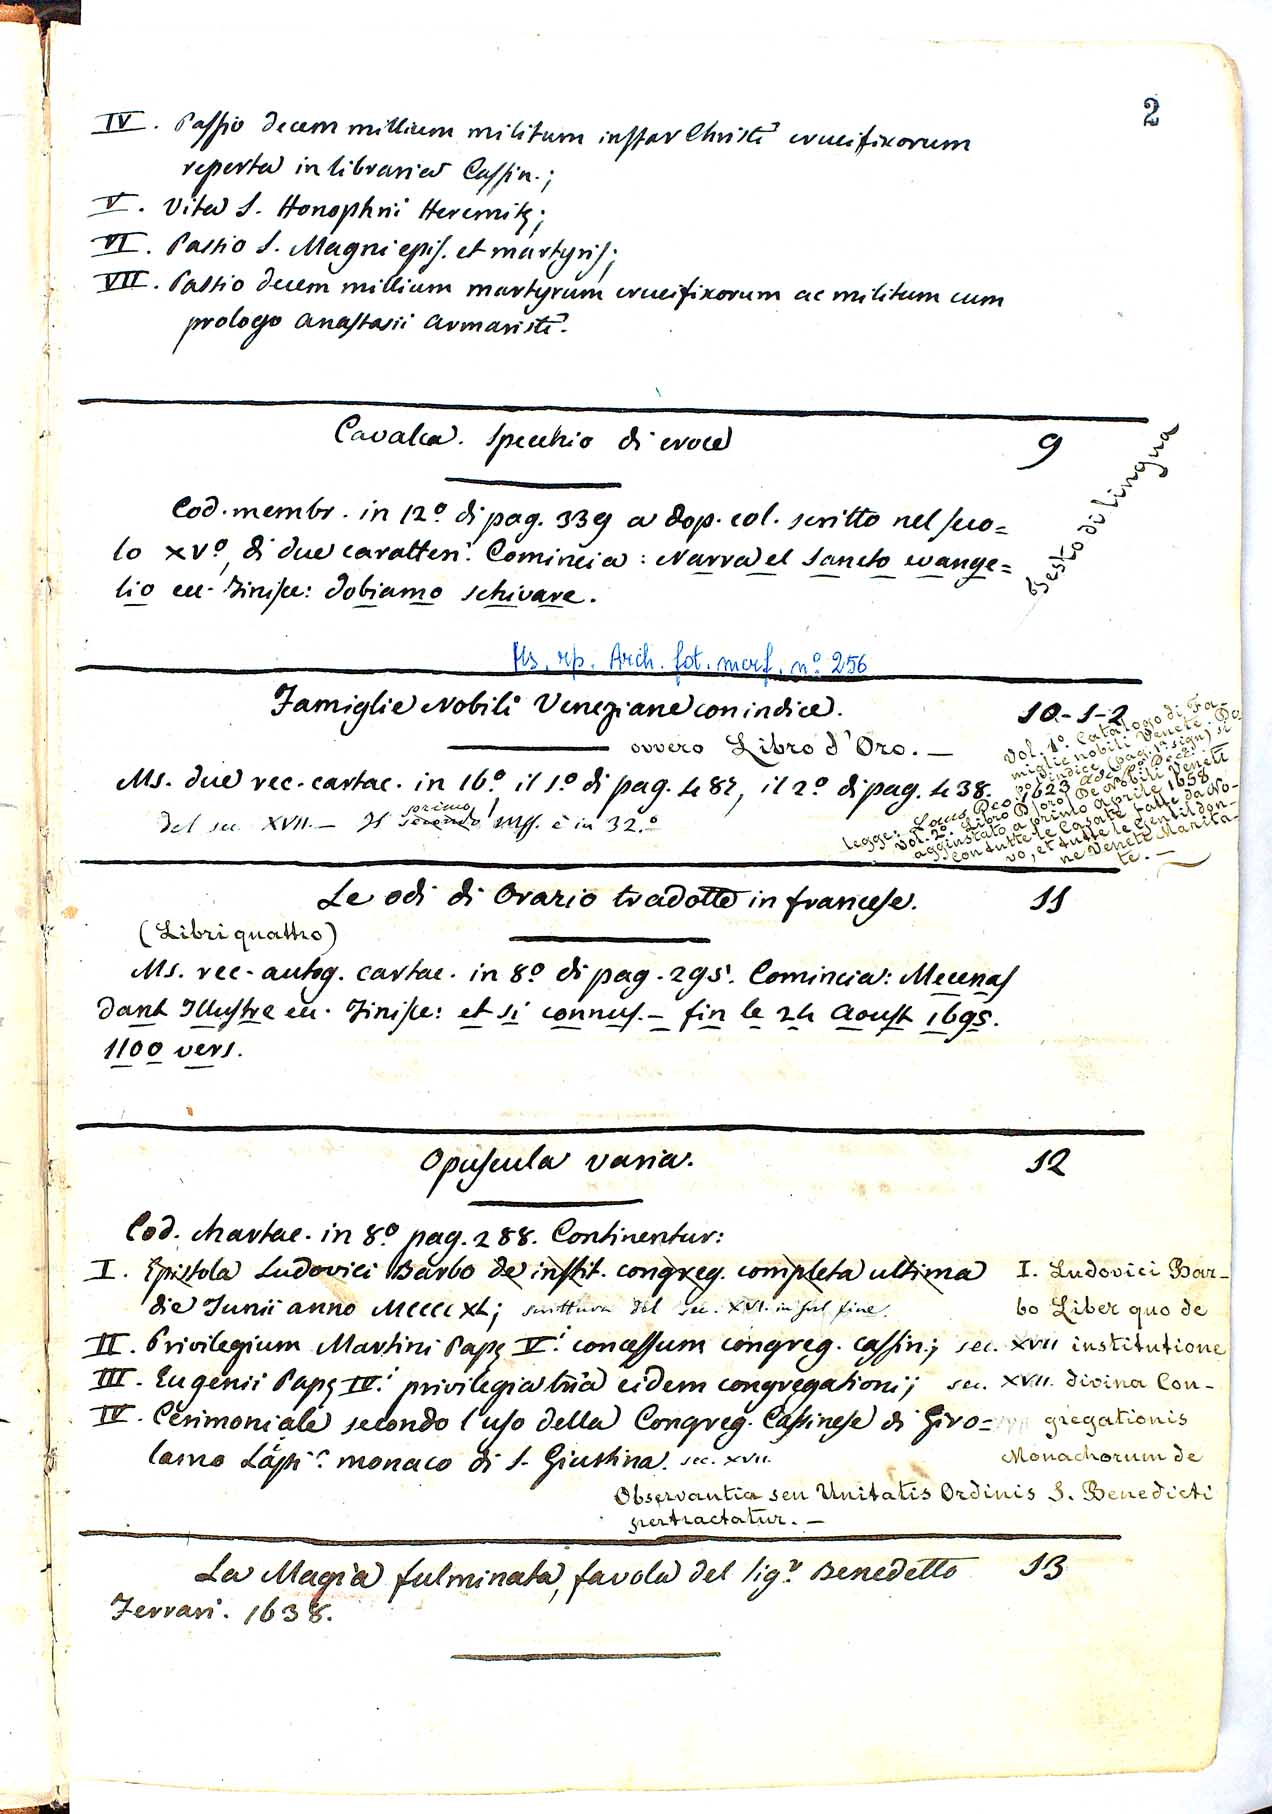 2
IV. Passio decem millium militum instar Christi crucifixorum
reperta in libraria Cassin.;
V. Vita S. Honophrii Heremitę;
VI. Passio S. Magni epis. et martyris;
VII. Passio decem millium martyrum crucifixorum ac militum cum
prologo Anastasii Armaristi.
Cavalca. Specchio di croce 9
Cod. membr. in 12º di pag. 339 a dop. col. scritto nel seco=
lo XVº, di due caratteri. Comincia: Narra el Sancto evange=
lio ec. Finisce: dobiamo schivare.
Testo di lingua
Ms. rp. Arch. fot. merf. nº 256
Famiglie Nobili Veneziane con indice. 10-1-2
ovvero Libro d'Oro. —
Ms. due rec. cartac. in 16º il 1º di pag. 482, il 2º di pag. 438.
primo
del sec. XVII. — Il secondo mss. è in 32.º
Vol. 1º. Catalogo di Fa-
miglie nobili Venete. Do
po l'indice (pag. 1ª sign) si
legge: Laus Deo 1623
Vol. 2º. Libro D'oro De Nobili Veneti
aggiustato a primo Aprile 1658
con tutte le Casate fatte da No-
vo, et tutte le Gentildon-
ne Venete Marita-
te. —
Le odi di Orazio tradotte in francese. 11
(Libri quattro)
Ms. rec. autog. cartac. in 8º di pag. 295. Comincia: Mecenas
dont Illustre ec. Finisce: et si connus. — fin le 24 Aoust 1695.
1100 vers.
Opuscula varia. 12
Cod. chartac. in 8º pag. 288. Continentur:
I. Epistola Ludovici Barbo de instit. congreg. completa ultima
die Junii anno MCCCCXL; scrittura del sec. XVI. in sul fine.
II. Privilegium Martini Papę V.i concessum congreg. cassin.; sec. XVII
III. Eugenii Papę IV.i privilegia tria eidem congregationi; sec. XVII.
IV. Cerimoniale secondo l'uso della Congreg. Cassinese di Giro=
lamo monaco di S. Giustina. sec. XVII.
I. Ludovici Bar-
bo Liber quo de
institutione
divina Con-
gregationis
Monachorum de
Observantia seu Unitatis Ordinis S. Benedicti
pertractatur. —
La Magia fulminata, favola del sig.r Benedetto 13
Ferrari. 1638.